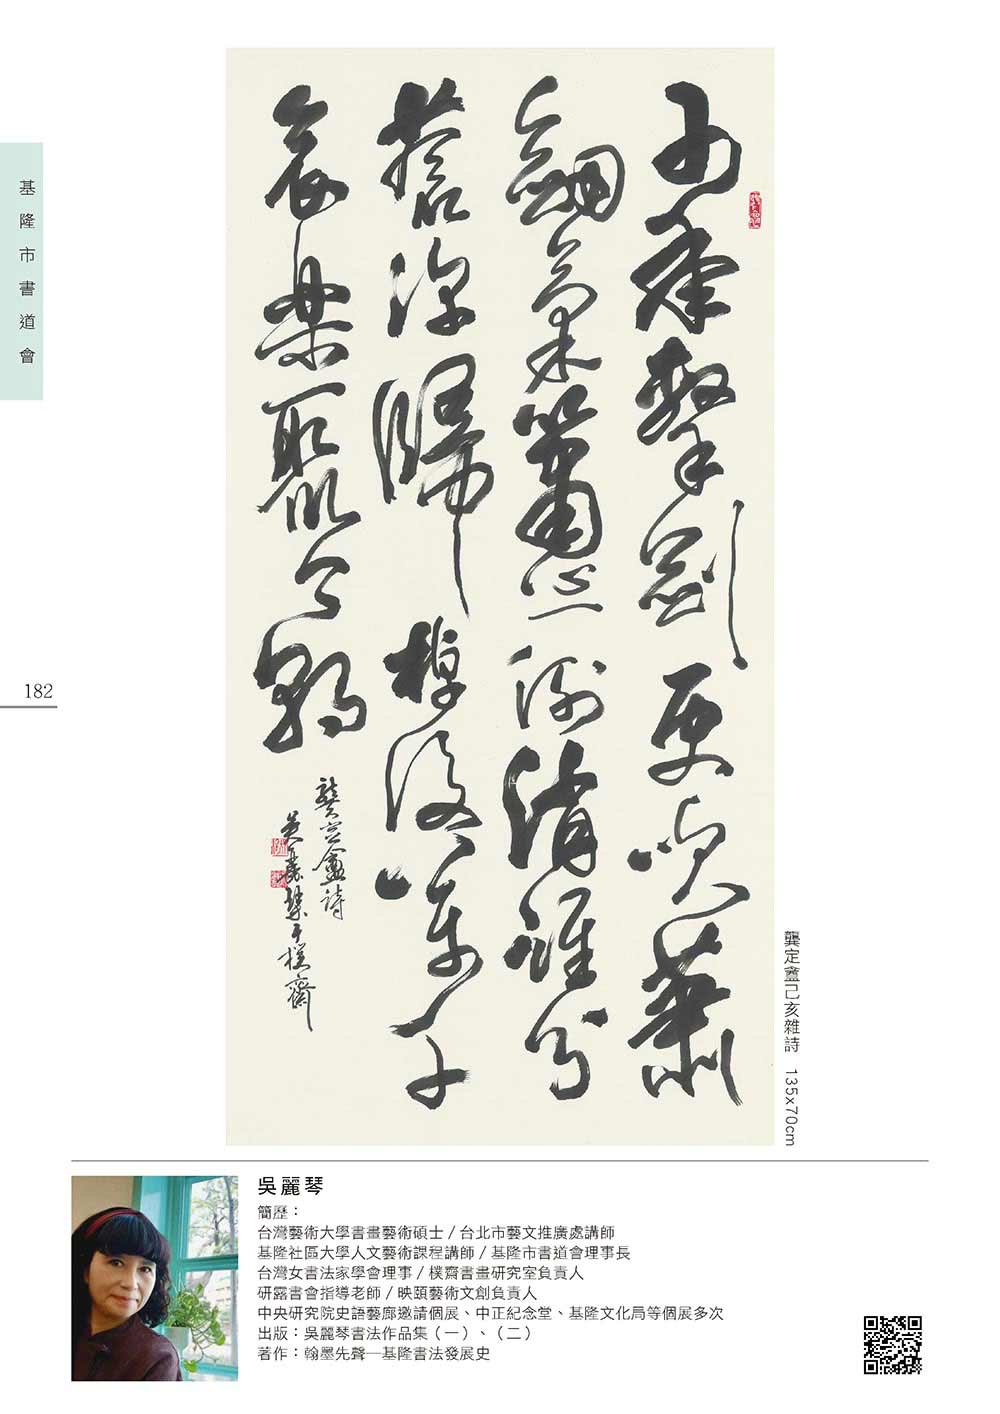 基隆市書道會
182
少年擊劍更吹蕭
劍氣簫心一例消誰分
蒼涼歸棹後萬千
哀樂聚今朝
龔定盦詩
吳麗琴于樸齋
龔定盦己亥雜詩 135x70cm
吳麗琴
簡歷：
台灣藝術大學書畫藝術碩士/台北市藝文推廣處講師
基隆社區大學人文藝術課程講師/基隆市書道會理事長
台灣女書法家學會理事/樸齋書畫研究室負責人
研露書會指導老師/映頤藝術文創負責人
中央研究院史語藝廊邀請個展、中正紀念堂、基隆文化局等個展多次
出版：吳麗琴書法作品集（一）、（二）
著作：翰墨先聲─基隆書法發展史